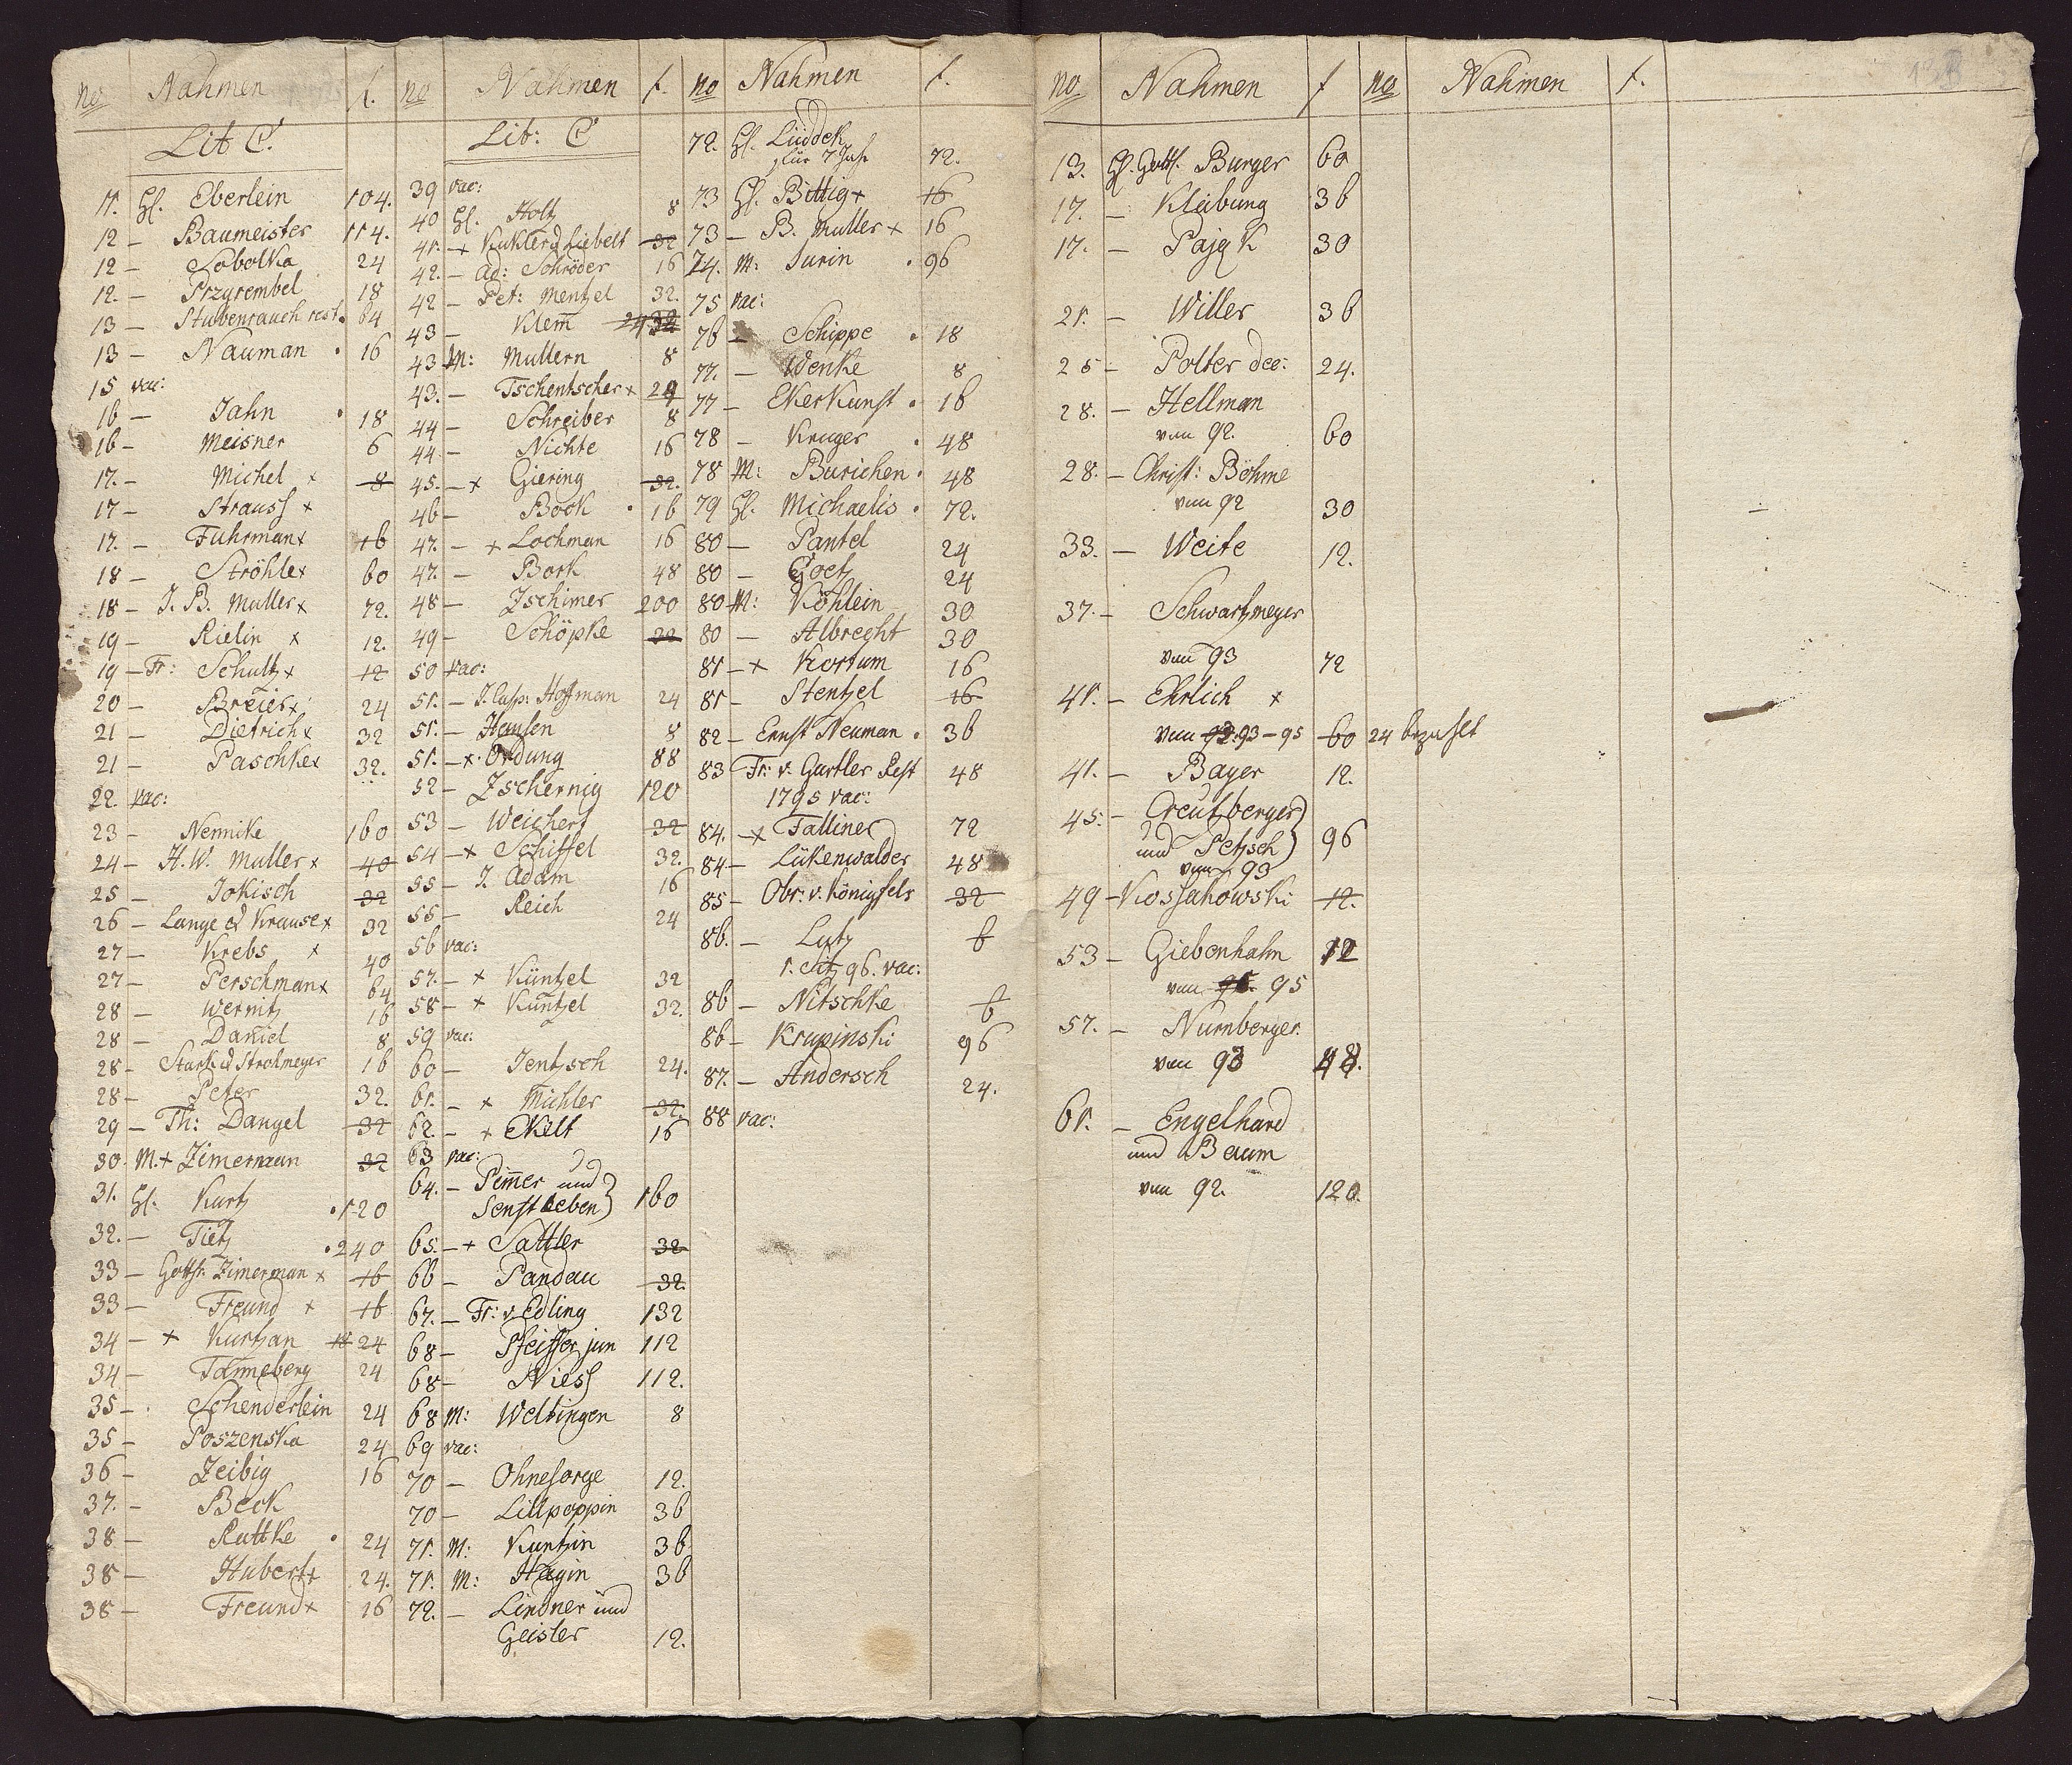 no Nahmen f.
Lit C.
11. H. Eberlein 104.
12 — Baumeister 114.
12 — Sobolka 24
12. — Przyrembel 18
13 — Stubenrauch rest. 64
13 — Nauman . 16
15 vac:
16 — Jahn . 18
16 — Meisner 6
17. — Michel x 8
17 — Strauss x
17. — Fuhrman x 16
18 — Ströhle x 60
18 — J. B. Muller x 72.
19 — Rielin x 12.
19 — Fr: Schultz x 12
20 — Breier x 24
21 — Dietrich x 32
21 — Paschke x 32.
22. vac:
23 — Nennike 160
24 — H. W. Muller x 40
25 — Jokisch 32
26 — Lange et Krause x 32
27 — Krebs x 40
27 — Perschman x 64
28 — Wernitz 16
28 — Daniel 8
28 — Stark et Strohmeyer 16
28 — Peter 32.
29 — Th: Dangel 32
30. M. + Zimerman 32
31. H. Kurtz . 120
32. — Tietz . 240
33 — Gottfr. Zimerman x 16
33 — Freund x 16
34 — + Kurtzan 18 24
34 — Tanneberg 24
35 — Schenderlein 24
35 — Poszenska 24
36 — Zeibig 16
37. — Beck
38 — Rattke . 24
38 — Hubert x 24.
38 — Freund x 16
no Nahmen f.
Lit: C
39 vac:
40 H. Holtz 8
41. — + Kukler et Liebelt 32
42. — Ad: Schröder 16
42 — Pet: Mentzel 32.
43 — Klem̅ 24 32
43 M: Mullern 8
43. — Tschentscher x 24
44 — Schreiber 8
44 — Nichte 16
45. — x Giering 32.
46 — Bock . 16
47. — + Lochman 16
47. — Bork 48
48 — Zschimer 200
49 — Schöpke 32
50 vac:
51. — J. Casp: Hofman 24
51. — Hemsen 8
51. — x Ordung 88
52 — Zschernig 120
53 — Weichert 32
54 — x Schiffel 32.
55 — J. Adam 16
55 — Reich 24
56 vac:
57. — x Küntzel 32
58 — x Kuntzel 32.
59 vac:
60 — Jentzsch 24.
61. — x Michler 32.
62. — + Ekelt 16
63 vac:
64. — Pem̅er und
Senftleben } 160
65. — + Sattler 32
66 — Pandau 32.
67. — Fr: v. Edling 132
68 — Pfeiffer jun 112
68 — Niess 112.
68 M: Weltingen 8
69 vac:
70 — Ohnesorge 12.
70 — Lillpoppin 36
71. M: Kuntzin 36
71. M: Hagin 36
72. — Lindner und
Geisler 12.
no Nahmen f.
72. H. Lüddek
für 7 Jahr 72.
73 H. Bittig + 16
73 — B. Muller x 16
74. M: Jurin . 96
75 vac:
76 — Schippe . 18
77. — Wenke 8
77 — Ekerkunst . 16
78 — Kruger . 48
78 M: Burichen . 48
79 H. Michaelis . 72.
80 — Pantel 24
80 — Goetz 24
80 M: Köhlein 30
80 — Albrecht 30
81 — + Kortum 16
81 — Stentzel 16
82 — Ernst Neuman . 36
83 Fr: v. Gartler Rest 48
1795 vac:
84. — x Falliner 72
84 — Lükenwalder 48
85 — Obr: v. Königsfels 32
86. — Lutz 6
1. Sitz 96. vac:
86 — Nitschke 6
86 — Krupinski 96
87. — Andersch 24.
88 vac:
no. Nahmen f no Nahmen f.
13. H. Gottl. Burger 60
17. — Kleibung 36
17. — Pajak 30
21. — Willer 36
25 — Polter dec: 24.
28. — Hellman
vom 92. 60
28. — Christ: Böhme
vom 92 30
33. — Weite 12.
37. — Schwartzmeyer
vom 93 72
41. — Ehrlich x
vom 92. 93 — 95 60 24 bezahlt
41. — Bayer 12.
45. — Creutzberger
und Petzsch } 96
vom 93
49 — Kossakowski 12.
53 — Giebenhahn 12
vom 95
57. — Nurnberger
vom 93 48.
61. — Engelhard
und Baum
vom 92. 120.